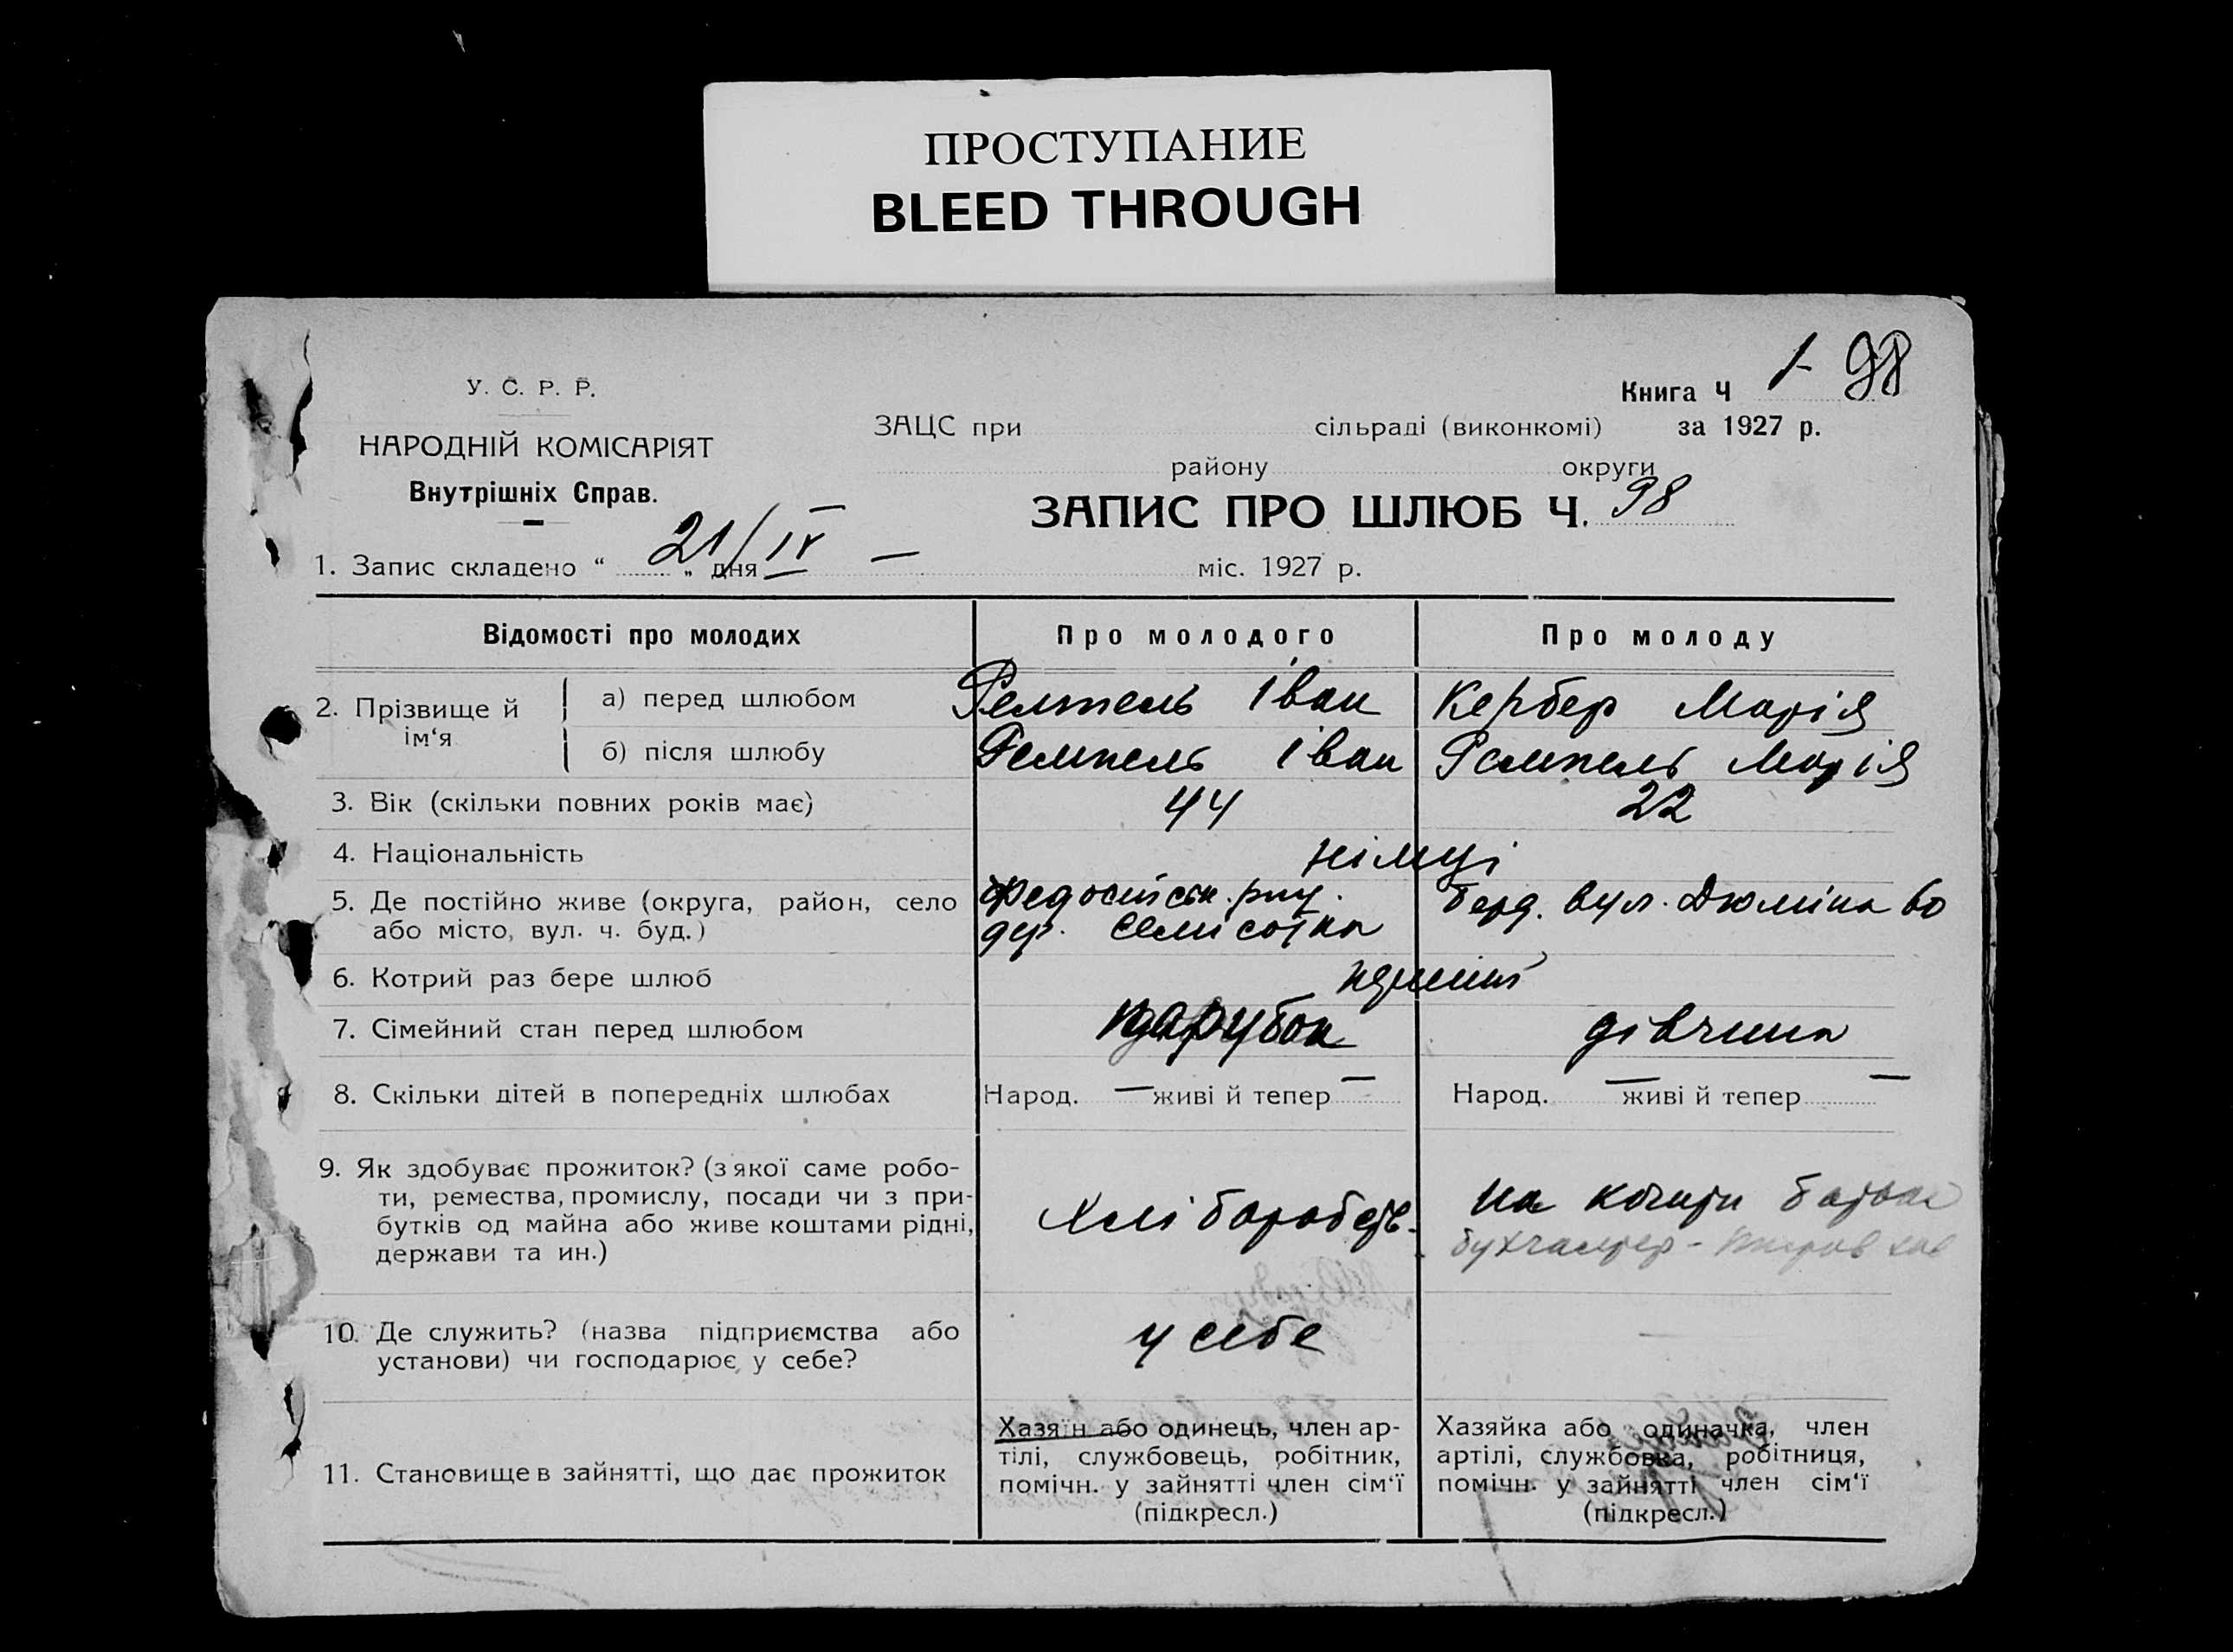 ПРОСТУПАНИЕ
BLEED THROUGH
У. С. Р. Р.
НАРОДНІЙ КОМІСАРІЯТ
Внутрішніх Справ.
Книга Ч 1- 98
ЗАЦС при сільраді (виконкомі) за 1927 р.
району округи
ЗАПИС ПРО ШЛЮБ Ч. 98
1. Запис складено “ 21/IV „ дня — міс. 1927 р.
Відомості про молодих Про молодого Про молоду
2. Прізвище й ім‘я
а) перед шлюбом Ремпель Іван Кербер Марія
б) після шлюбу Ремпель Іван Ремпель Марія
3. Вік (скільки повних років має) 44 22
4. Національність німці
5. Де постійно живе (округа, район, село або місто, вул. ч. буд.)
дер. Семисотка
Берд. вул. Дюміна 60
6. Котрий раз бере шлюб перший
7. Сімейний стан перед шлюбом парубок дівчина
8. Скільки дітей в попередніх шлюбах Народ. — живі й тепер — Народ. — живі й тепер —
9. Як здобуває прожиток? (з якої саме робо-
ти, ремества, промислу, посади чи з при-
бутків од майна або живе коштами рідні,
держави та ин.)
Хліборобств.
на кошти батька
бухгалтер -
10. Де служить? (назва підприємства або
установи) чи господарює у себе?
у себе
11. Становище в зайнятті, що дає прожиток
Хазяїн або одинець, член ар-
тілі, службовець, робітник,
помічн. у зайнятті член сім‘ї
(підкресл.)
Хазяйка або одиначка, член
артілі, службовка, робітниця,
помічн. у зайнятті член сім‘ї
(підкресл.)